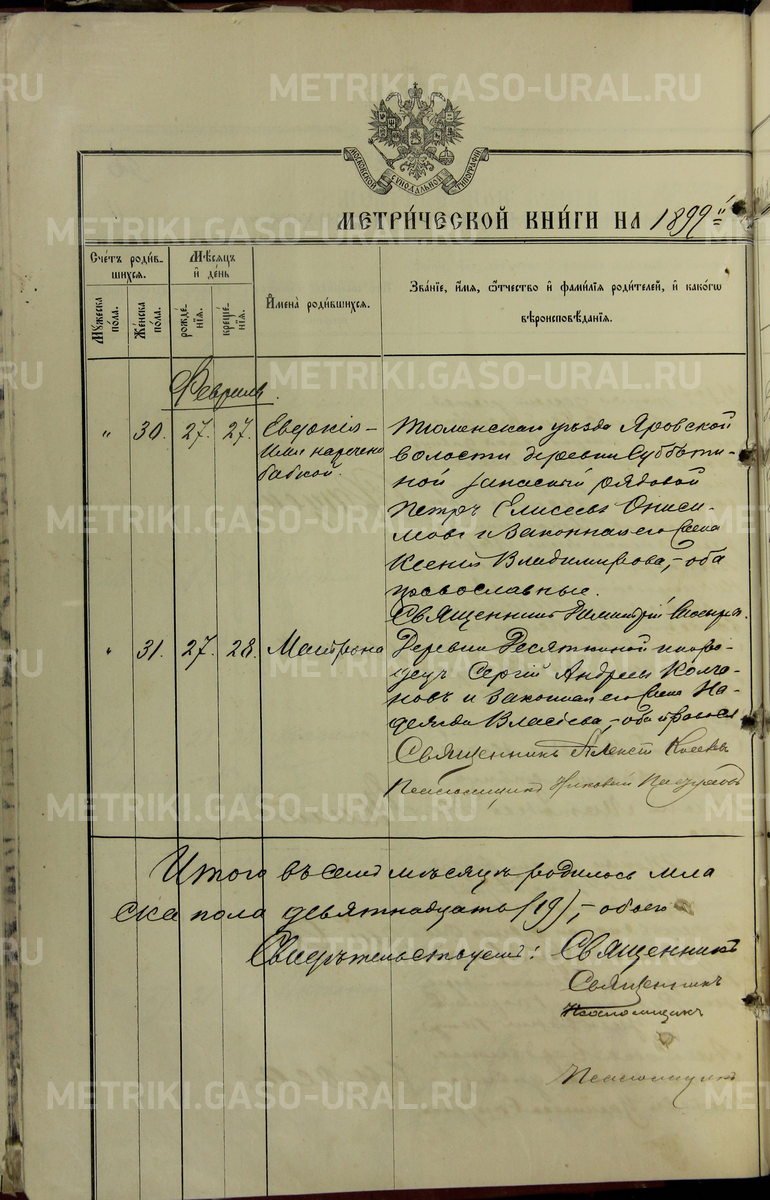 METRIKI.GASO-URAL.RU
МОСКОВСКОЙ СѴНОДАЛЬНОЙ ТИПОГРАФІИ
МЕТРИ́ЧЕСКОЙ КНИ́ГИ НА 1899 й
Счетъ роди́вшихсѧ.
Мꙋжеска по́ла.
Же́нска по́ла.
Мѣ́сѧцъ и҆ де́нь
рожде́нїѧ.
креще́нїѧ.
И҆мена̀ роди́вшихсѧ.
Зва́нїе, и҆́мѧ, ѻ҆́тчество и҆ фамѝлїѧ роди́телей, и҆ како́гѡ
вѣроисповѣ́данїѧ.
Февраль.
„ 30. 27. 27. Евдокія –
имя наречено
бабкой.
Тюменскаго уѣзда Яровской
волости деревни Субботи-
ной запасный рядовой
Петръ Елисеевъ Ониси-
мовъ и законная его жена
Ксенія Владимирова, – оба
православные.
Священникъ Димитрій
„ 31. 27. 28. Матрона
Деревни Десяткиной
Сергій Андреевъ Колча-
новъ и законная его жена На-
дежда Власіева, – оба правосл.
Священникъ Алексѣй
Псаломщикъ Николай
Итого въ семъ мѣсяцѣ родилось муж
ска пола девятнадцать (19), – обоего
Свидѣтельствуемъ: Священникъ
Священникъ
Псаломщикъ
Псаломщикъ